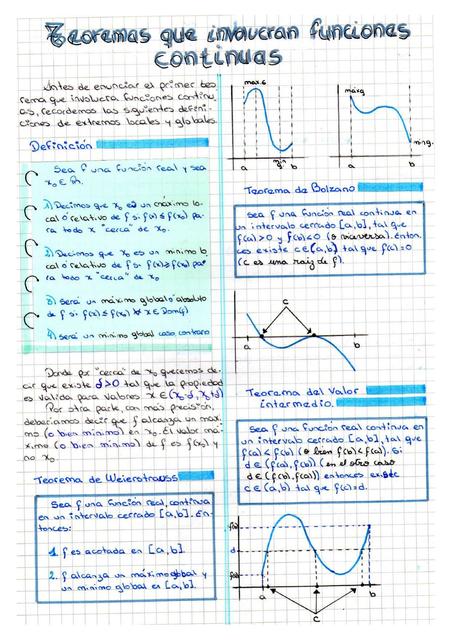 Teoremas que involucran funciones
continuas
Antes de enunciar el primer teo
rema que involucra funciones continu
as, recordemos las siguientes defini-
ciones de extremos locales y globales.
Definición
Sea f una función real y sea
x₀ ∈ ℝ.
1) Decimos que x₀ es un máximo lo
cal o relativo de f si f(x) ≤ f(x₀) pa-
ra todo x "cerca" de x₀.
2) Decimos que x₀ es un mínimo lo
cal o relativo de f si f(x) ≥ f(x₀) pa
ra todo x "cerca" de x₀
3) será un máximo global o absoluto
de f si f(x) ≤ f(x₀) ∀ x ∈ Dom(f)
4) será un mínimo global caso contrario
Donde por "cerca" de x₀ queremos de-
cir que existe δ>0 tal que la propiedad
es válida para valores x ∈ (x₀-δ, x₀+δ)
Por otra parte, con más precisión,
deberíamos decir que f alcanza un máxi
mo (o bien mínimo) en x₀. El valor má-
ximo (o bien mínimo) de f es f(x₀) y
no x₀.
Teorema de Weierstrauss
Sea f una función real, continua
en un intervalo cerrado [a,b]. En-
tonces:
1. f es acotada en [a,b].
2. f alcanza un máximo global y
un mínimo global en [a,b].
max.G
min
a
b
máxg
a
b
Teorema de Bolzano
Sea f una función real continua en
un intervalo cerrado [a,b], tal que
f(a)>0 y f(b)<0 (o viceversa). Enton-
ces existe c∈(a,b) tal que f(c)=0
(c es una raíz de f).
c
a
b
Teorema del Valor
intermedio.
Sea f una función real continua en
un intervalo cerrado [a,b], tal que
f(a)<f(b) (o bien f(b)<f(a)). Si
d∈(f(a),f(b)) (en el otro caso
d∈(f(b),f(a))) entonces existe
c∈(a,b) tal que f(c)=d.
f(b)
d
f(a)
a
b
c